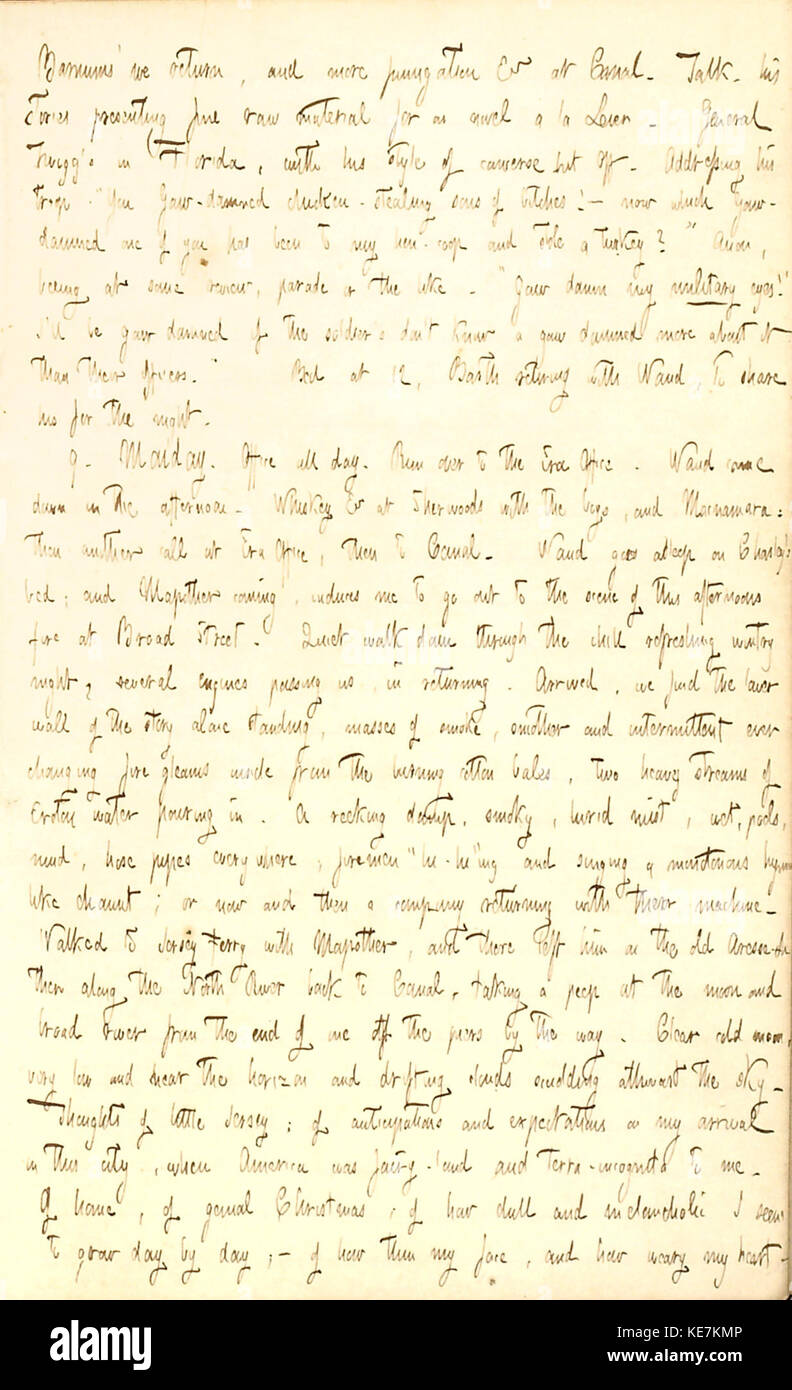 Barnums' we return, and more fumigation &c at Canal. Talk. his
stories presenting fine raw material for a novel a la Lever. General
Twigg's in (Florida, with his style of converse hit off. Addressing his
troops "You Gaw-damned chicken-stealing sons of bitches! — now which Gaw-
damned one of you has been to my hen-coop and stole a turkey?" Anon,
being at some review, parade or the like - "Gaw damn my military eyes!
I'll be gaw damned if the soldiers don't know a gaw damned more about it
than their officers." Bed at 12, Barth retiring with Waud, to share
his for the night.
9. Monday. Office all day. Run over to the Era Office. Waud came
down in the afternoon. Whiskey &c at Sherwoods with the boys, and Macnamara:
then another call at Era Office, then to Canal. Waud goes asleep on Charley's
bed; and Mapother coming, induces me to go out to the scene of this afternoons
fire at Broad Street. Quiet walk down through the chill refreshing wintry
night, several engines passing us in returning. Arrived, we find the lower
wall of the story alone standing, masses of smoke, smother and intermittent ever
changing fire gleams inside from the burning cotton bales, two heavy streams of
Croton water pouring in. A reeking damp, smoky, lurid mist, wet, pools,
mud, hose pipes every where, firemen "hi-hi"ing and singing a monotonous hymn
like chaunt; or now and then a company returning with their machine.
Walked to Jersey Ferry with Mapother, and there left him on the old
then along the North River back to Canal, taking a peep at the moon and
broad river from the end of one off the piers by the way. Clear cold moon,
very low and near the horizon and drifting clouds scudding athwart the sky.
Thoughts of little Jersey; of anticipations and expectations on my arrival
in this city, when America was fairy-land and Terra-incognita to me.
Of home, of genial Christmas, of how dull and melancholic I seem
to grow day by day; — of how thin my face, and how weary my heart -
alamy
Image ID: KE7KMP
www.alamy.com